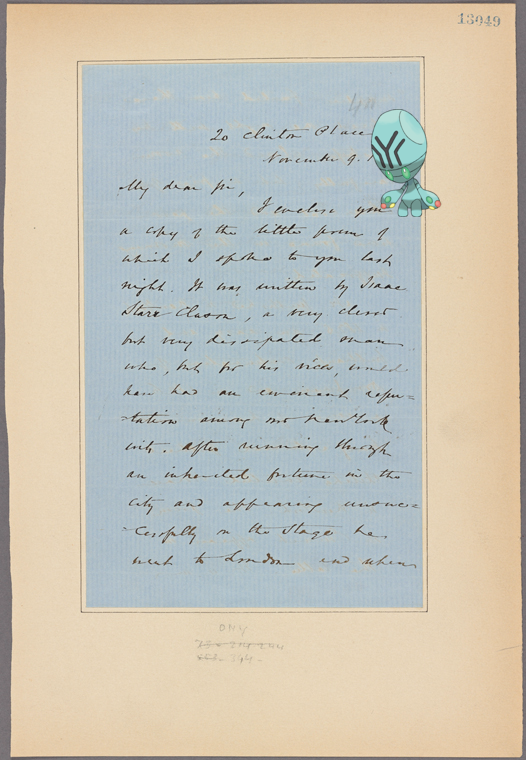 13049
20 Clinton Place
November 9.
My dear Sir,
I enclose you
a copy of the little poem of
which I spoke to you last
night. It was written by Isaac
Starr Clason, a very clever
but very dissipated man
who, but for his vices, would
have had an eminent repu=
=tation among our New York
wits. After running through
an inherited fortune in the
city and appearing unsuc=
=cessfully on the Stage he
went to London and when